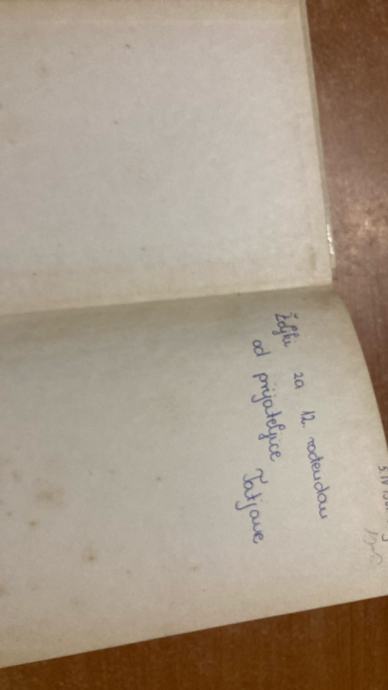 Željki za 12. rođendan
od prijateljice Tatjane